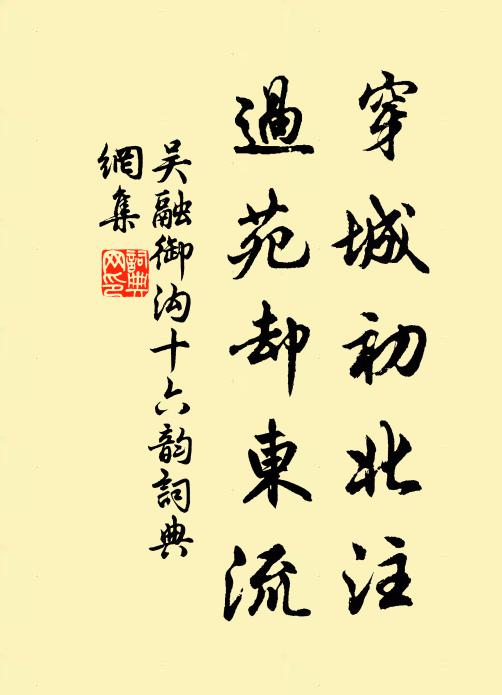 穿城初北注
過苑却東流
吴融御沟十六韵詞典
網集
詞典
网印